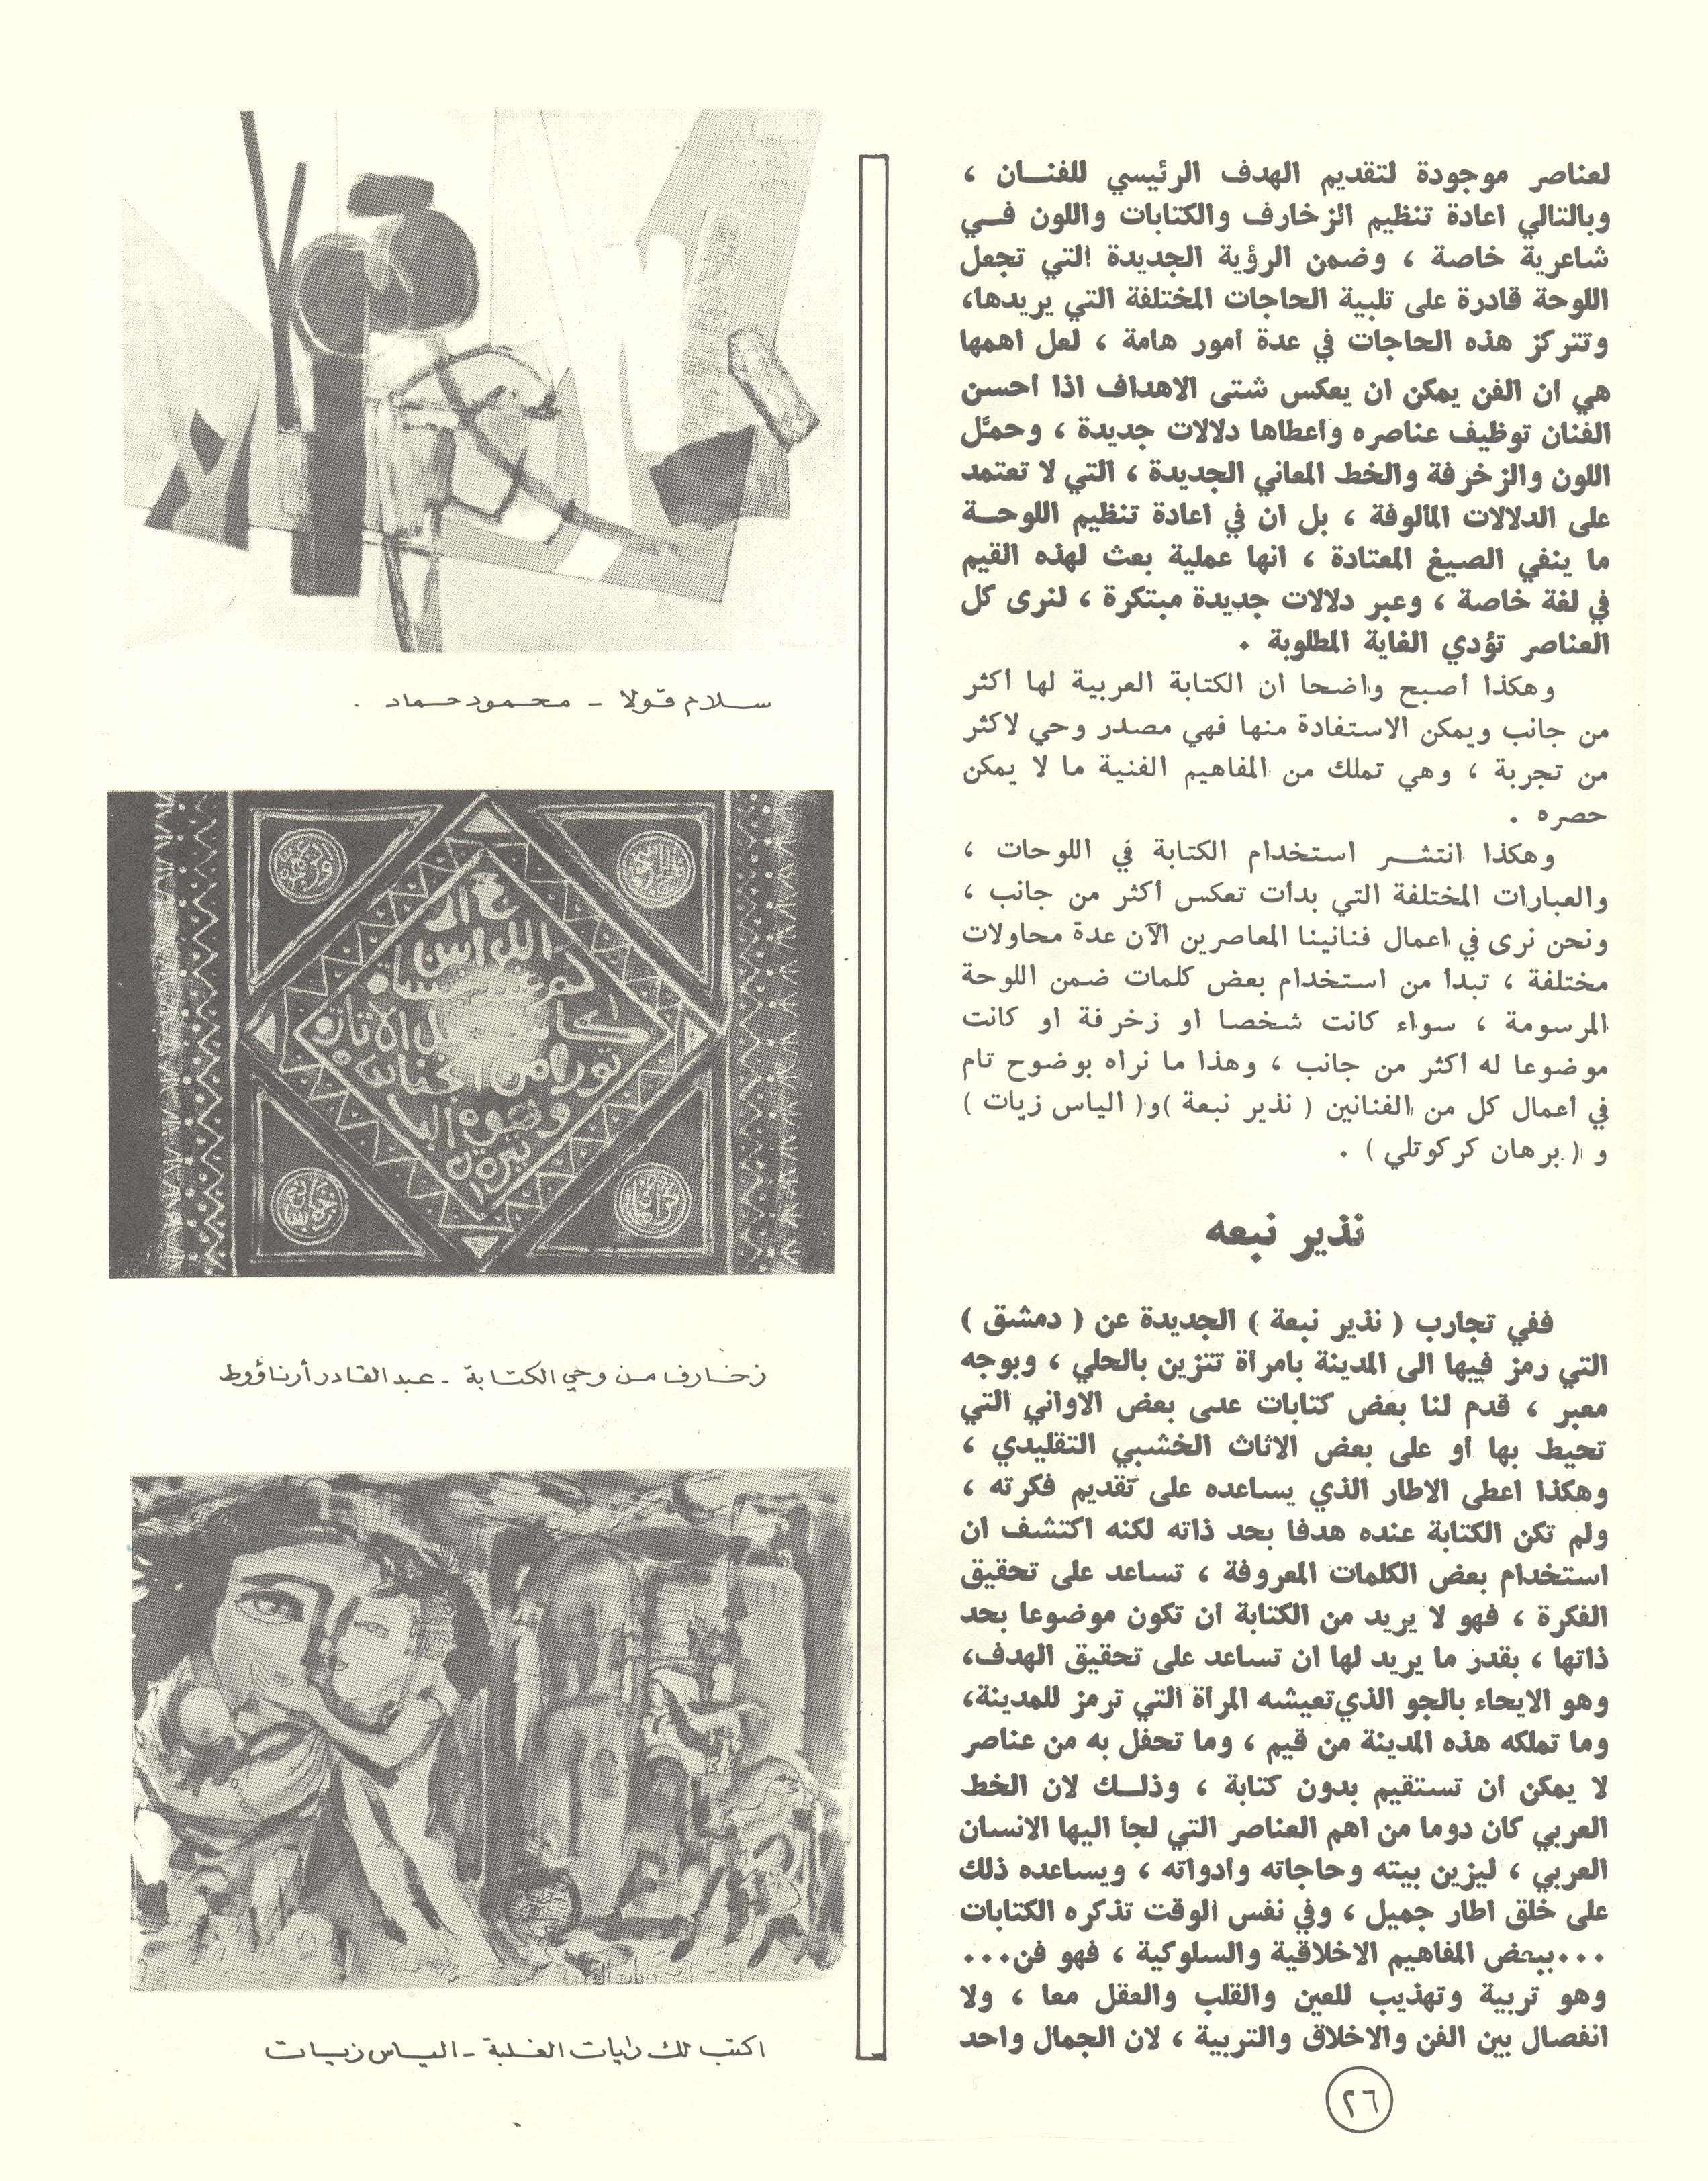 لعناصر موجودة لتقديم الهدف الرئيسي للفنــان ،
وبالتالي اعادة تنظيم الزخارف والكتابات واللون فــي
شاعرية خاصة ، وضمن الرؤية الجديدة التي تجعل
اللوحة قادرة على تلبية الحاجات المختلفة التي يريدها،
وتتركز هذه الحاجات في عدة أمور هامة ، لعل أهمها
هي أن الفن يمكن ان يعكس شتى الاهداف اذا أحسن
الفنان توظيف عناصره وأعطاها دلالات جديدة ، وحمَّل
اللون والزخرفة والخط المعاني الجديدة ، التي لا تعتمد
على الدلالات المألوفة ، بل ان في اعادة تنظيم اللوحــة
ما ينفي الصيغ المعتادة ، انها عملية بعث لهذه القيم
في لغة خاصة ، وعبر دلالات جديدة مبتكرة ، لنرى كل
العناصر تؤدي الغاية المطلوبة .
وهكذا أصبح واضحا ان الكتابة العربية لها أكثر
من جانب ويمكن الاستفادة منها فهي مصدر وحي لاكثر
من تجربة ، وهي تملك من المفاهيم الفنية ما لا يمكن
حصره .
وهكذا انتشــر استخدام الكتابة في اللوحات ،
والعبارات المختلفة التي بدأت تعكس أكثر من جانب ،
ونحن نرى في اعمال فنانينا المعاصرين الآن عدة محاولات
مختلفة ، تبدأ من استخدام بعض كلمات ضمن اللوحة
المرسومة ، سواء كانت شخصا او زخرفة او كانت
موضوعا له أكثر من جانب ، وهذا ما نراه بوضوح تام
في أعمال كل من الفنانين ( نذير نبعة )و( الياس زيات )
و ( برهان كركوتلي ) .
نذير نبعه
ففي تجارب ( نذير نبعة ) الجديدة عن ( دمشق )
التي رمز فيها الى المدينة بامرأة تتزين بالحلي ، وبوجه
معبر ، قدم لنا بعض كتابات على بعض الاواني التي
تحيط بها أو على بعض الاثاث الخشبي التقليدي ،
وهكذا اعطى الاطار الذي يساعده على تقديم فكرته ،
ولم تكن الكتابة عنده هدفا بحد ذاته لكنه اكتشف ان
استخدام بعض الكلمات المعروفة ، تساعد على تحقيق
الفكرة ، فهو لا يريد من الكتابة أن تكون موضوعا بحد
ذاتها ، بقدر ما يريد لها ان تساعد على تحقيق الهدف،
وهو الايحاء بالجو الذي تعيشه المرأة التي ترمز للمدينة،
وما تملكه هذه المدينة من قيم ، وما تحفل به من عناصر
لا يمكن أن تستقيم بدون كتابة ، وذلــك لان الخط
العربي كان دوما من أهم العناصر التي لجأ اليها الانسان
العربي ، ليزين بيته وحاجاته وأدواته ، ويساعده ذلك
على خلق اطار جميل ، وفي نفس الوقت تذكره الكتابات
...ببعض المفاهيم الاخلاقية والسلوكية ، فهو فن...
وهو تربية وتهذيب للعين والقلب والعقل معا ، ولا
انفصال بين الفن والاخلاق والتربية ، لان الجمال واحد
سلام قولا - محمود حماد .
زخارف من وحي الكتابة - عبد القادر أرناؤوط
اكتب لك رايات الغلبة - الياس زيات
٢٦